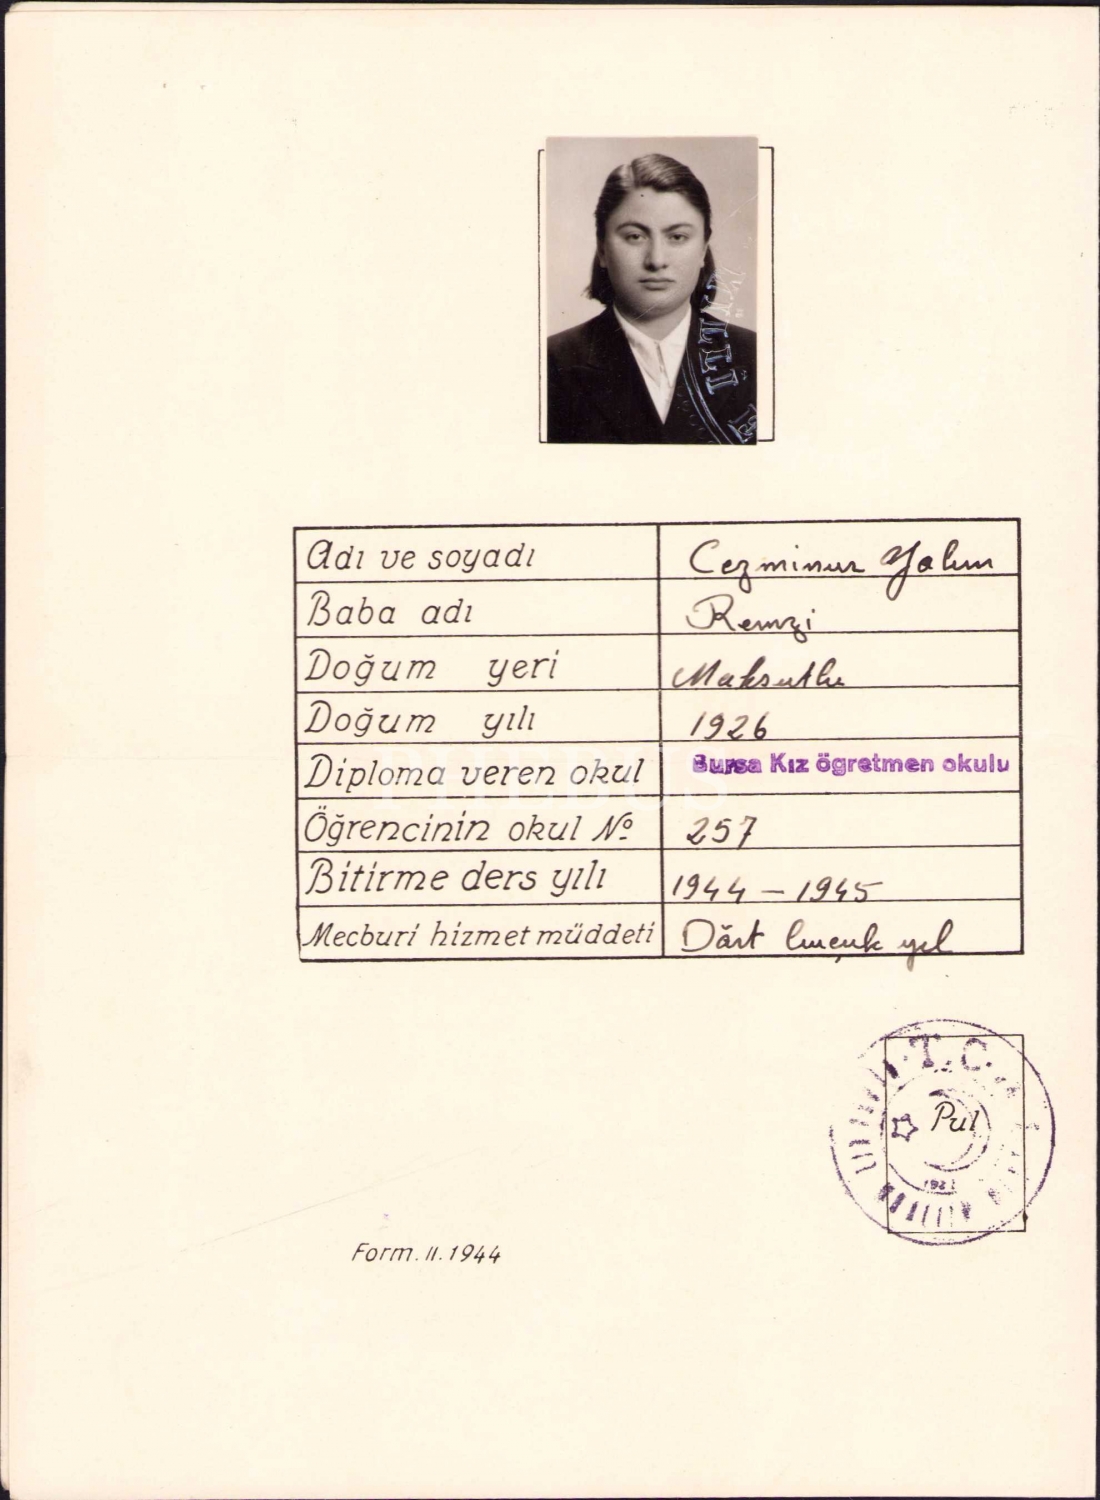 LLİ E
Adı ve soyadı Cezminur Yalım
Baba adı Remzi
Doğum yeri Maksutlu
Doğum yılı 1926
Diploma veren okul Bursa Kız ögretmen okulu
Öğrencinin okul No 257
Bitirme ders yılı 1944 – 1945
Mecburi hizmet müddeti Dört buçuk yıl
T. C.
Pul
Form. II. 1944
PHEBUS